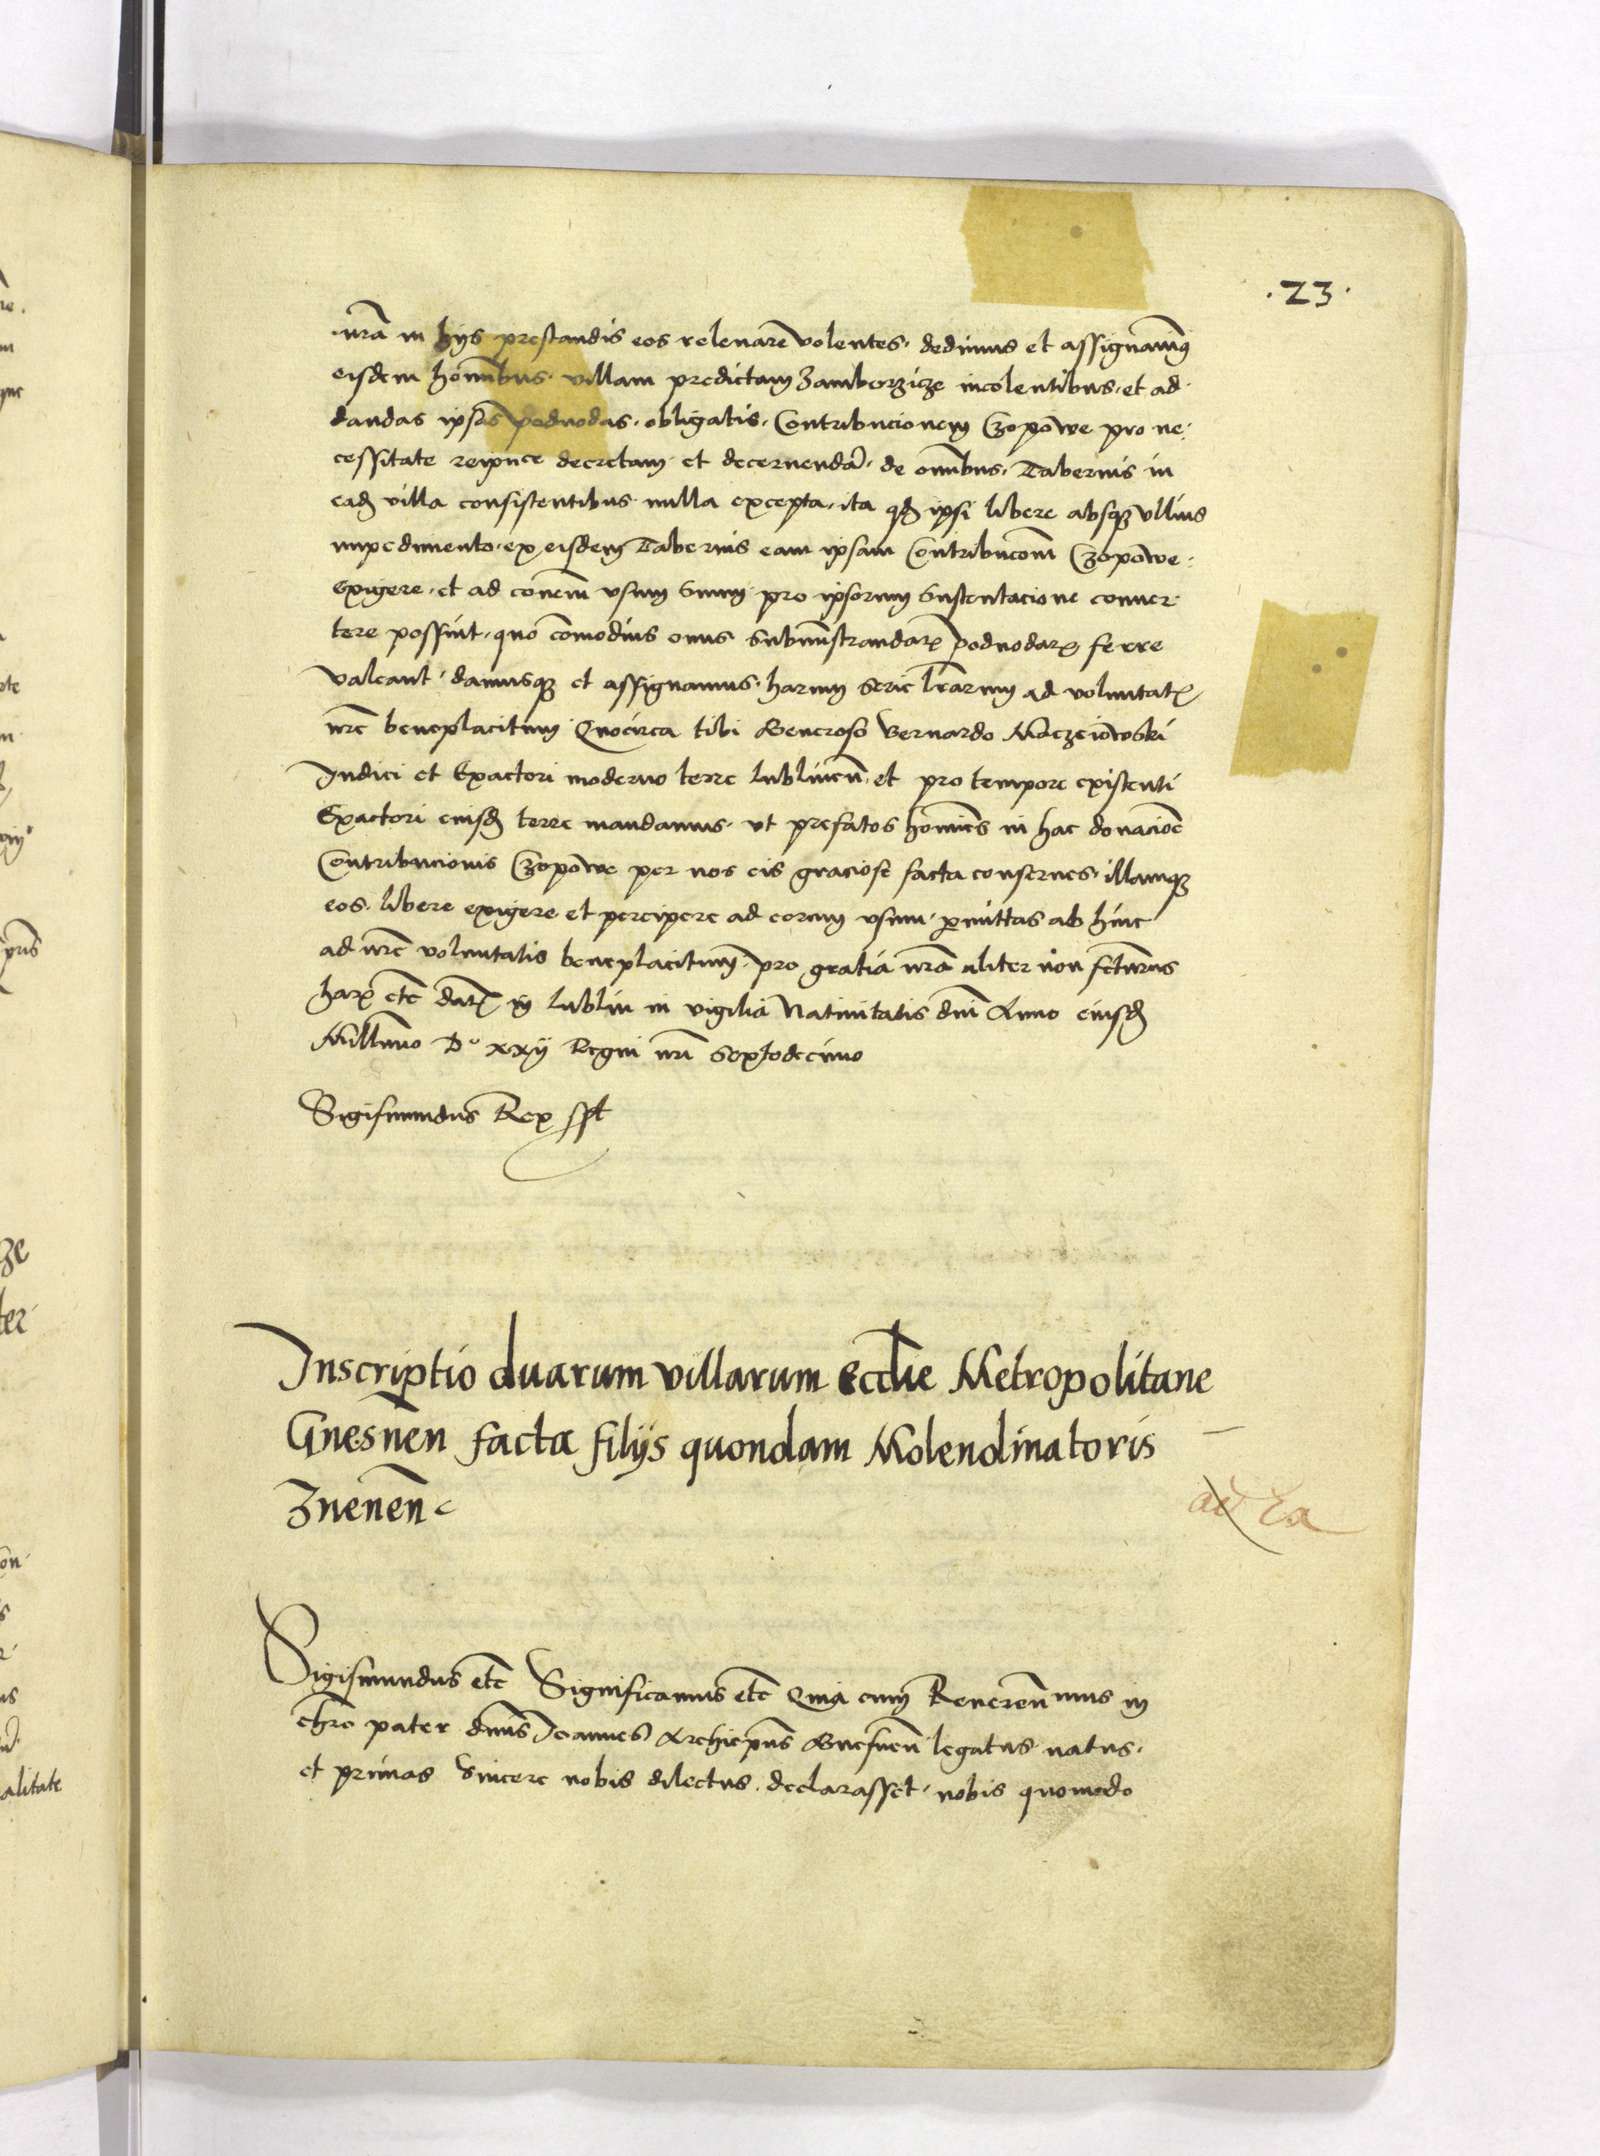 .23.
nrãm in hijs prestandis eos relevare volentes. dedimus et assignavimꝰ
eisdem hominibus. villam predictam Zamborzicze incolentibus. et ad
dandas ipsas podvodas. obligatis. Contribucionem Czopowe pro ne
cessitate reipuce decretam et decernendã. de omnibus. Tabernis in
eadẽ villa consistentibus nulla excepta. ita qđ ipsi libere absqȝ ullius
impedimento. ex eisdem Tabernis eam ipsam Contribucionem Czopowe.
Exigere. et ad coñem usum suum pro ipsorum sustentacione conver
tere possint. quo cõmodius onus subministrandarꝝ podvodarꝝ ferre
valeant. damusqȝ et assignamus. harum serie lr̃arum ad voluntatꝭ
nr̃e beneplacitum Quocirca tibi Generoso Bernardo Maczeiowski
Iudici et Exactori moderno terre lublineñ. et pro tempore existenti
Exactori eiusdẽ terre mandamus. ut prefatos homines in hac donacioẽ
Contribucionis Czopowe per nos eis graciose facta conserves. illamqȝ
eos. libere exigere et percipere ad eorum usum. ꝑmittas ab hinc
ad nr̃e voluntatis beneplacitum. pro gratia nr̃a aliter non facturus
harꝝ etc̃ datꝭ in lublin in vigilia Nativitatis dñi Anno eiusdẽ
Millimo Dº xxij Regni nr̃i septodecimo
Sigismundus Rex sst
Inscriptio duarum villarum eccl̃ie Metropolitane
Gnesneñ facta filijs quondam Molendinatoris
Zneneñ
Sigismundus etc̃ Significamus etc̃ Quia cum Reveren̄mus in
chr̃o pater dñus Ioannes Archiep̃us Gnesneñ legatus natus.
et primas sincere nobis dilectus. declarasset. nobis quomodo